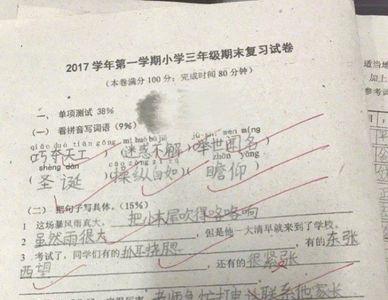 2017 学年第一学期小学三年级期末复习试卷
(本卷满分 100 分;完成时间 80 分钟)
一、 单项测试 38%
(一) 看拼音写词语 (9%)
qiǎo duó tiān gōng mí huò bù jiě jǔ shì wén míng
(巧夺天工)(迷惑不解)(举世闻名)
shèng dàn cāo zòng zì rú zhān yǎng
(圣诞)(操纵自如)(瞻仰)
(二) 把句子写具体。(15%)
1 这场暴风雨真大, 把小木屋吹得咯咯响
2 虽然雨很大 ,但是他一大清早就来到了学校。
3 考试了,同学们有的抓耳挠腮 有的东张
西望 ,还有的 很紧张